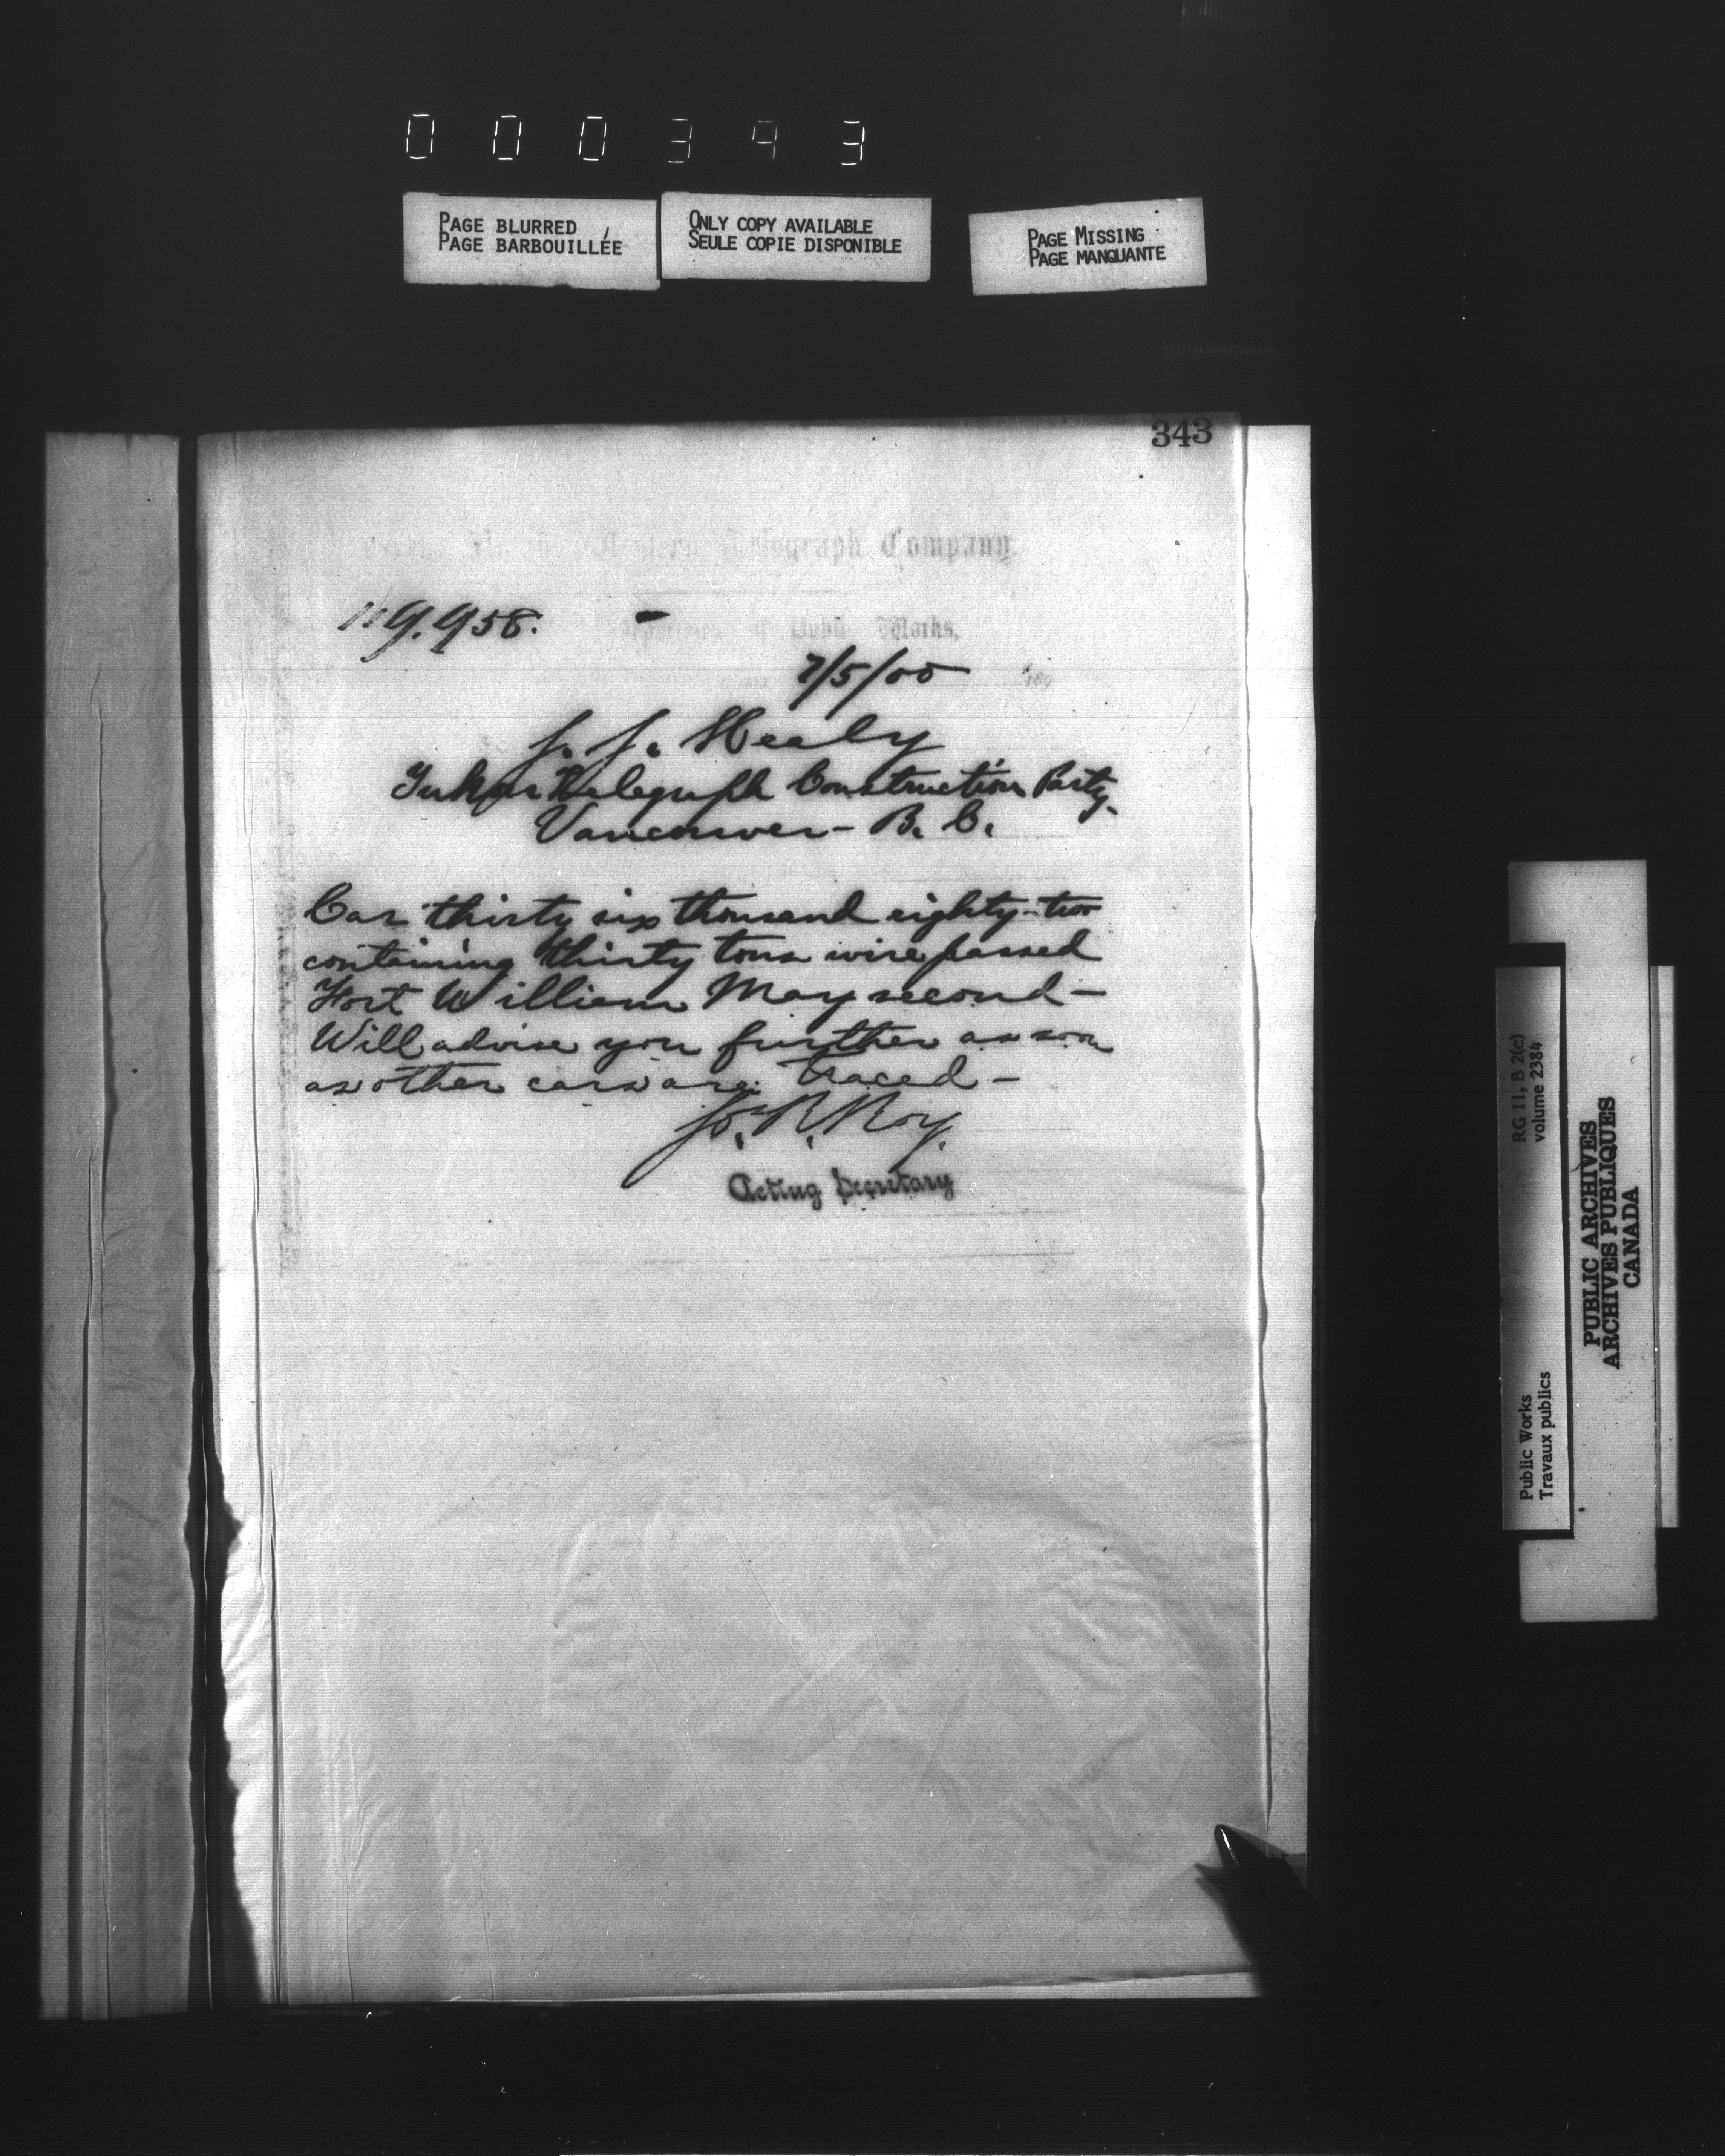 000343
PAGE BLURRED
PAGE BARBOUILLÉE
ONLY COPY AVAILABLE
SEULE COPIE DISPONIBLE
PAGE MISSING
PAGE MANQUANTE
343
Telegraph Company.
119.958.
Department of Public Works,
7/5/00
J. J. Healy
Yukon Telegraph Construction Party.
Vancouver - B. C.
Car thirty six thousand eighty-two
containing thirty tons wire passed
Fort William May second -
Will advise you further as soon
as other cars are traced -
Jos. R. Roy.
Acting Secretary
RG 11, B 2(c)
volume 2384
Public Works
Travaux publics
PUBLIC ARCHIVES
ARCHIVES PUBLIQUES
CANADA